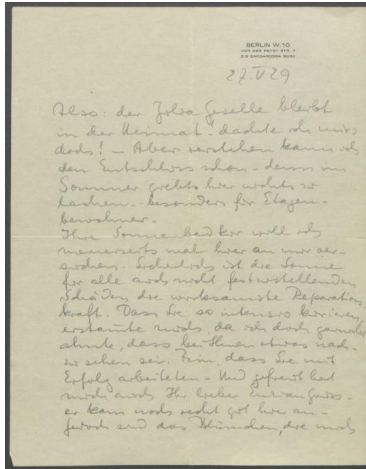 BERLIN W.10
VON DER HEYDT STR.
27.V.29
Also: der Geselle bleibt
in der Heimat! dachte ich mirs
doch! — Aber verstehen kann ich
den Entschluss schon - denn im
Sommer giebts hier nichts zu
lachen - besonders für Etagen-
bewohner.
Ihre Sonnenbadkur will ich
meinerseits mal hier an mir ver-
suchen. Sicherlich ist die Sonne
für alle auch nicht festzustellenden
Schäden die wirksamste Reparations
kraft. Dass Sie so intensiv kurieren,
erstaunte mich, da ich doch garnicht
ahnte, dass bei Ihnen etwas nach-
zusehen sei. Fein, dass Sie mit
Erfolg arbeiteten - Und gefreut hat
mich auch Ihr liebe
er kann noch recht gut hier an-
und das Blümchen, die mich